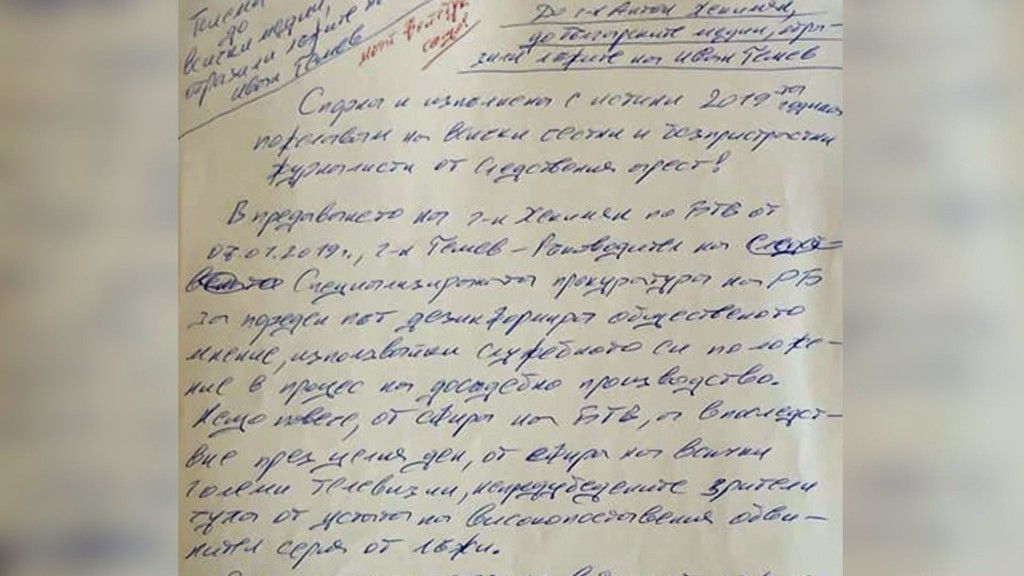 до
всички медии,
отразили лъжите на
Иван Гешев
До г-н Антон Хекимян,
до българските медии, отра-
зили лъжите на Иван Гешев
Спорна и изпълнена с истини 2019та година
пожелавам на всички честни и безпристрастни
журналисти от следствения арест!
В предаването на г-н Хекимян по БТВ от
07.01.2019г., г-н Гешев – Ръководител на
Специализираната прокуратура на РБ
за пореден път дезинформира общественото
мнение, използвайки служебното си положе-
ние в процес на досъдебно производство.
Нещо повече, от ефира на БТВ, а впоследст-
вие през целия ден, от ефира на всички
големи телевизии, непредубедените зрители
чуха от устата на високопоставения обви-
нител серия от лъжи.